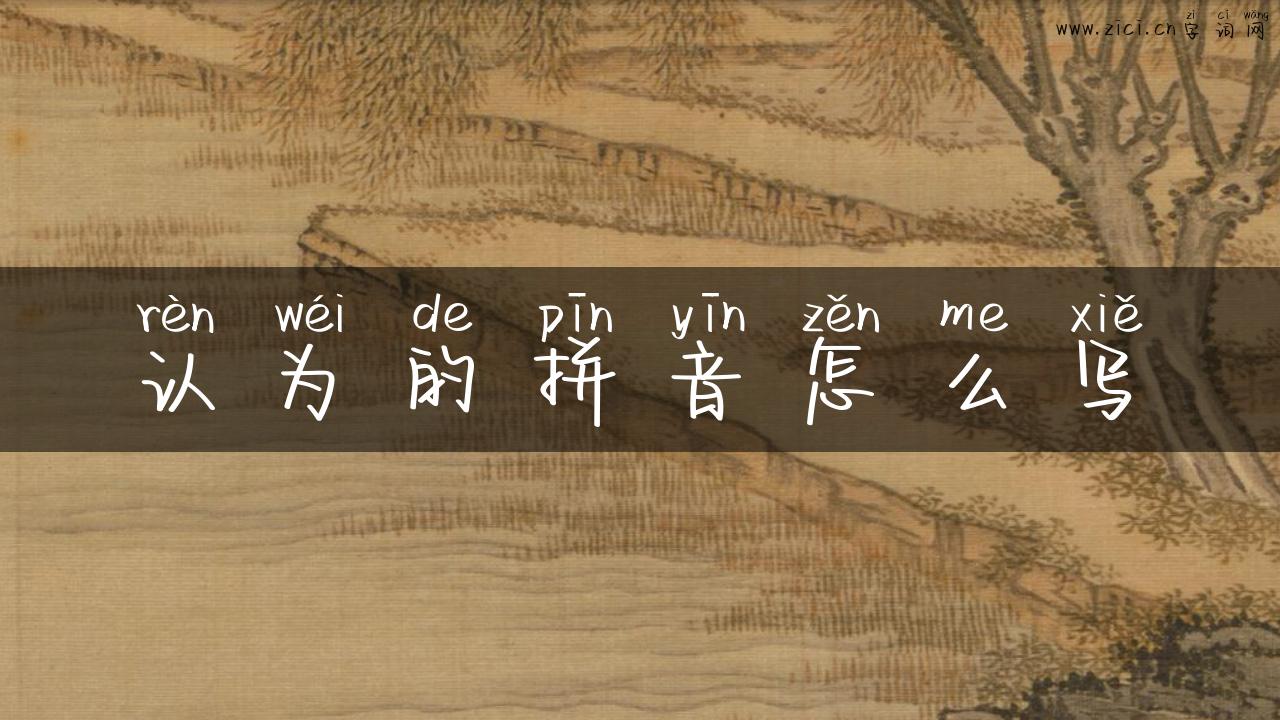 zì cí wǎng
www.zici.cn字词网
rèn wéi de pīn yīn zěn me xiě
认为的拼音怎么写